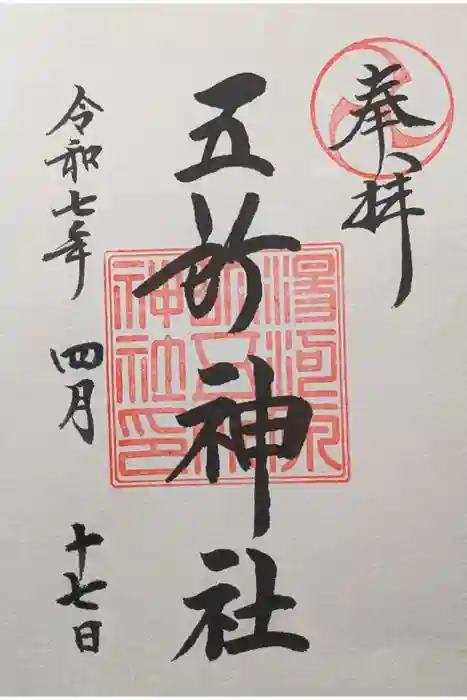 奉拝
五所神社
令和七年 四月 十七日
湯河原
五所
神社印